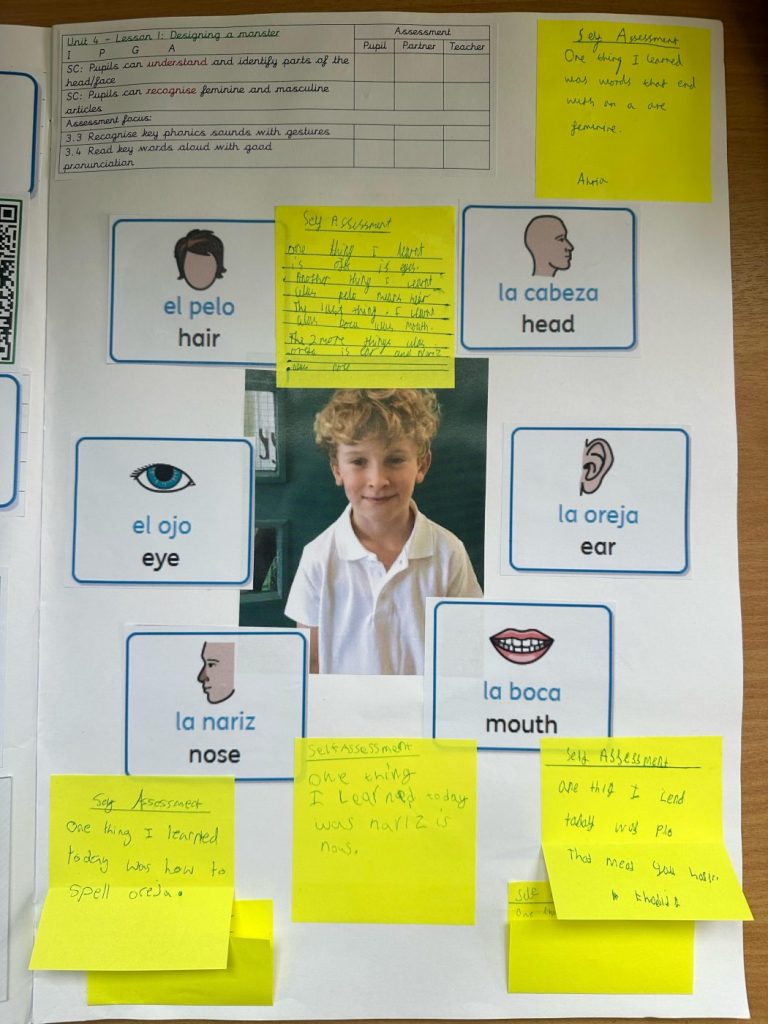 Unit 4 – Lesson 1: Designing a monster
I P G A
Assessment
Pupil Partner Teacher
SC: Pupils can understand and identify parts of the
head/face
SC: Pupils can recognise feminine and masculine
articles
Assessment focus:
3.3 Recognise key phonics sounds with gestures
3.4 Read key words aloud with good
pronunciation
Self Assessment
One thing I learned
was words that end
with an a are
feminine.
el pelo
hair
Self Assessment
one thing I learnt
is ojo is eyes.
Another thing I learnt
was pelo means hair
The last thing I learnt
was boca was mouth.
The 2 more things was
oreja is ear and nariz
was nose
la cabeza
head
el ojo
eye
la oreja
ear
la nariz
nose
la boca
mouth
Self Assessment
One thing I learned
today was how to
spell oreja.
Self Assessment
One thing
I Learned today
was nariz is
nows.
Self Assessment
one thig I lend
today was plo
That meas you
Self
One